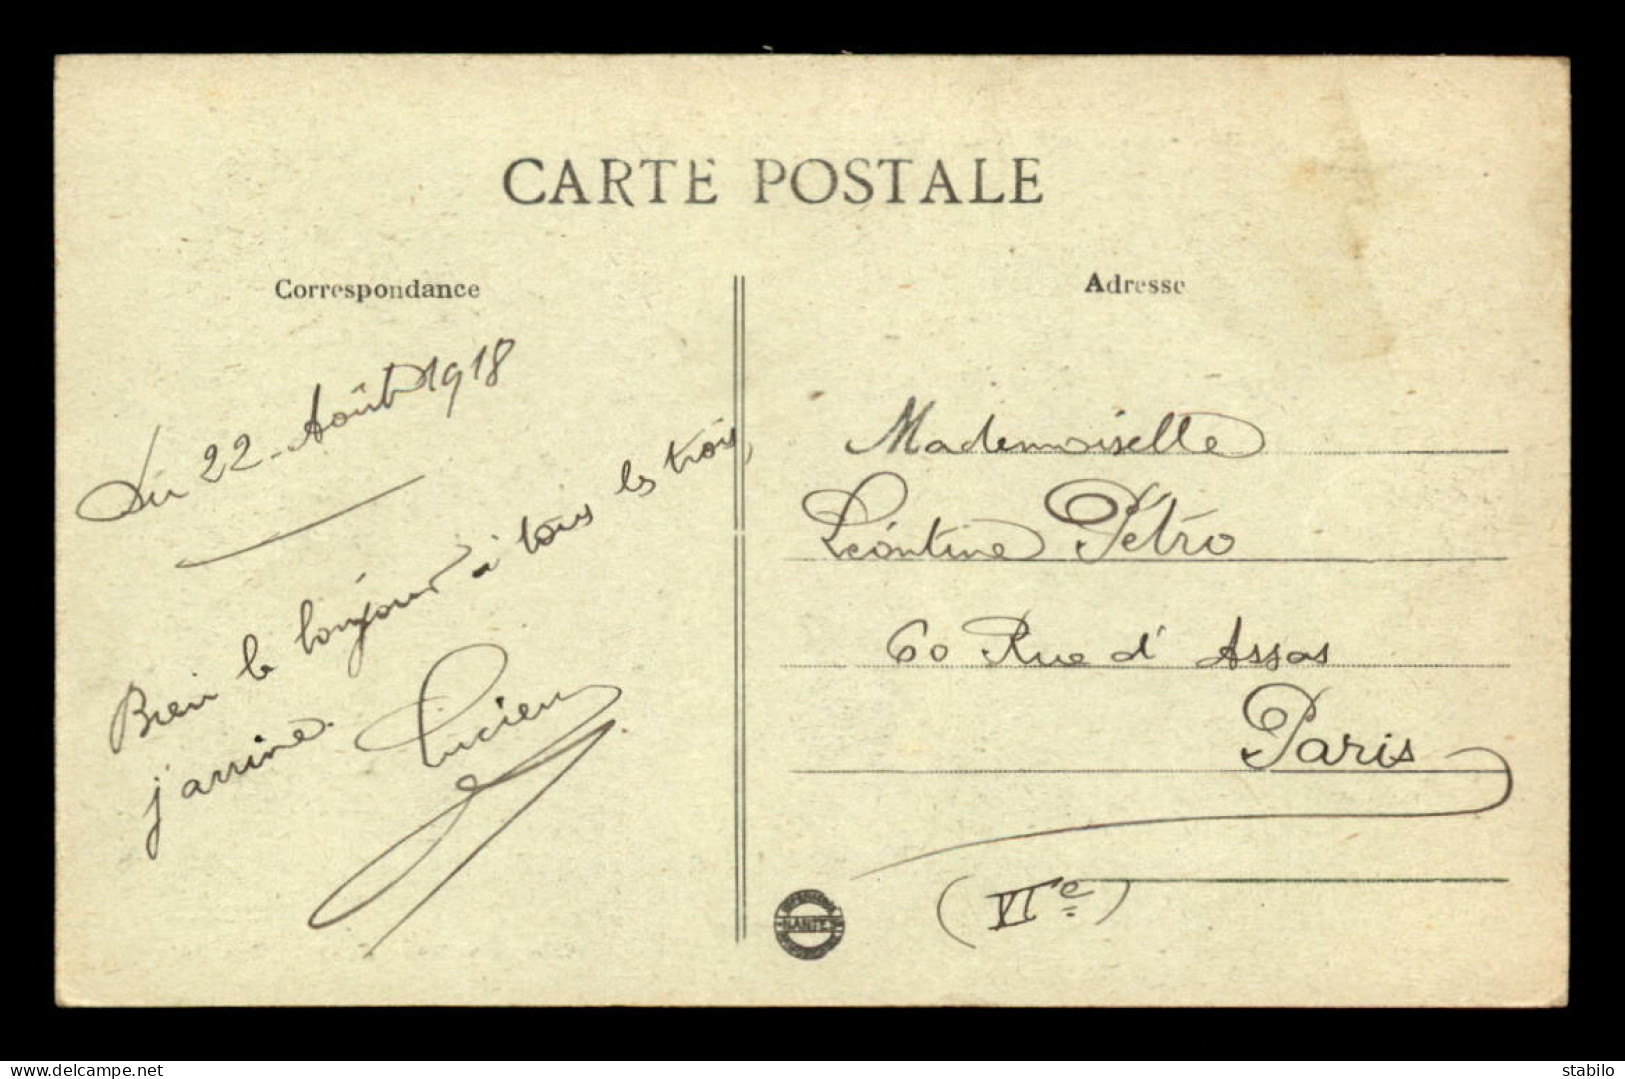 CARTE POSTALE
Correspondance
Du 22 - Août 1918
Bien le bonjour à tous les trois,
j'arrive. Lucien
Adresse
Mademoiselle
Léontine Pétro
60 Rue d' Assas
Paris
(VIe)
NANTES
www.delcampe.net
stabilo